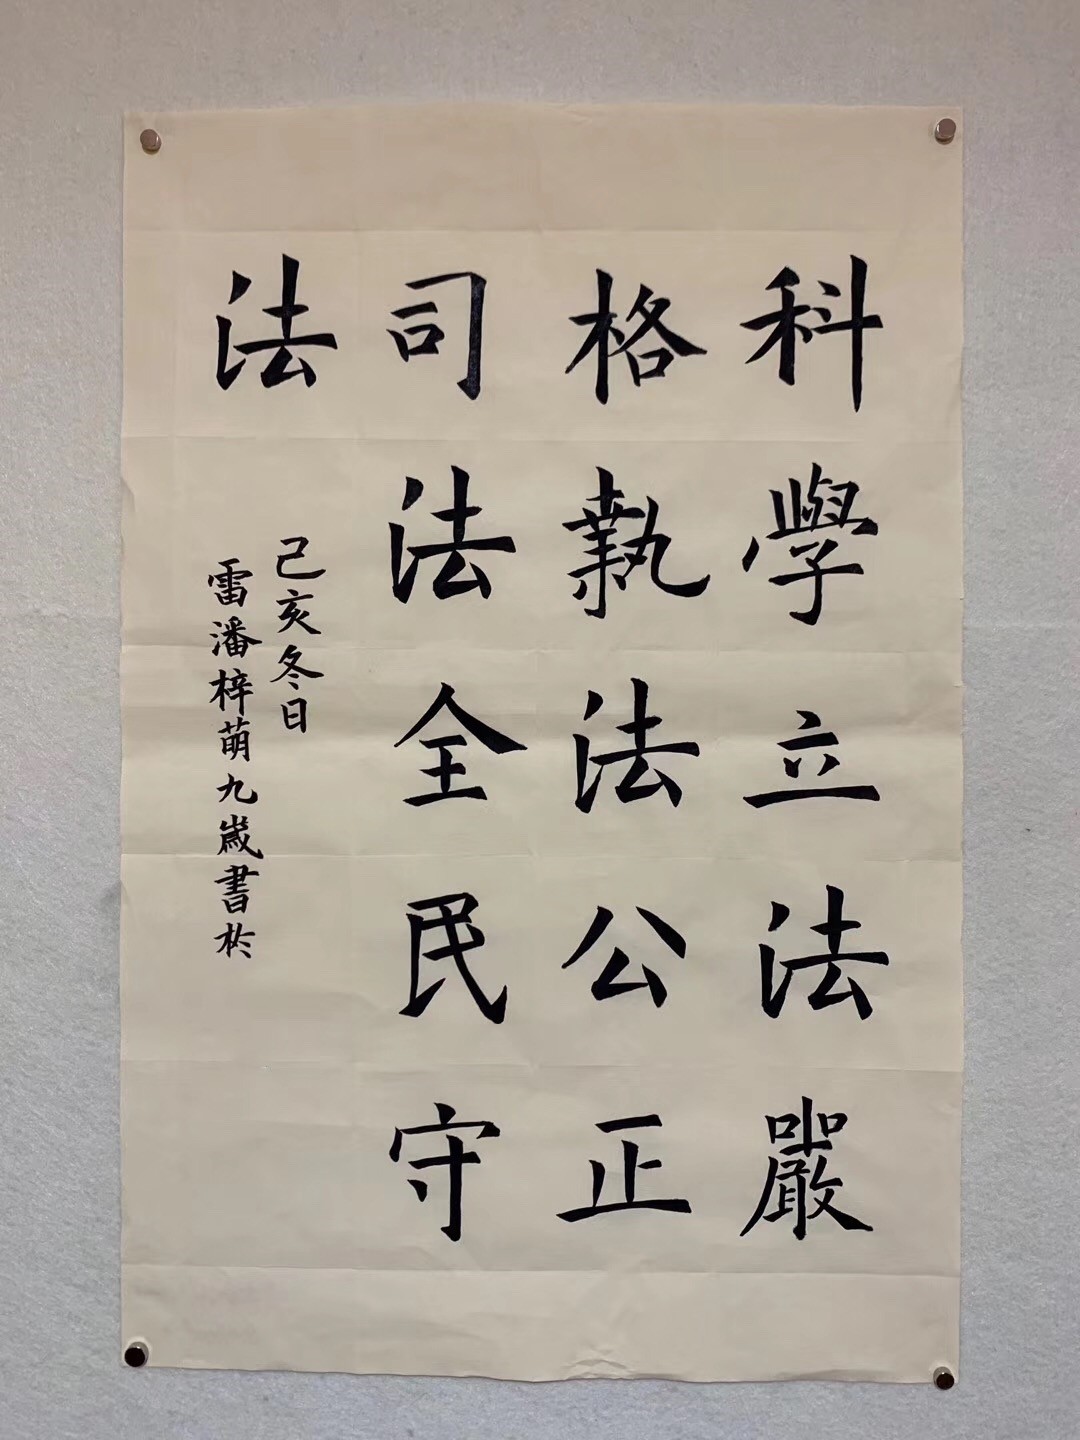 科學立法嚴
格執法公正
司法全民守
法
己亥冬日
雷潘梓萌九歲書於